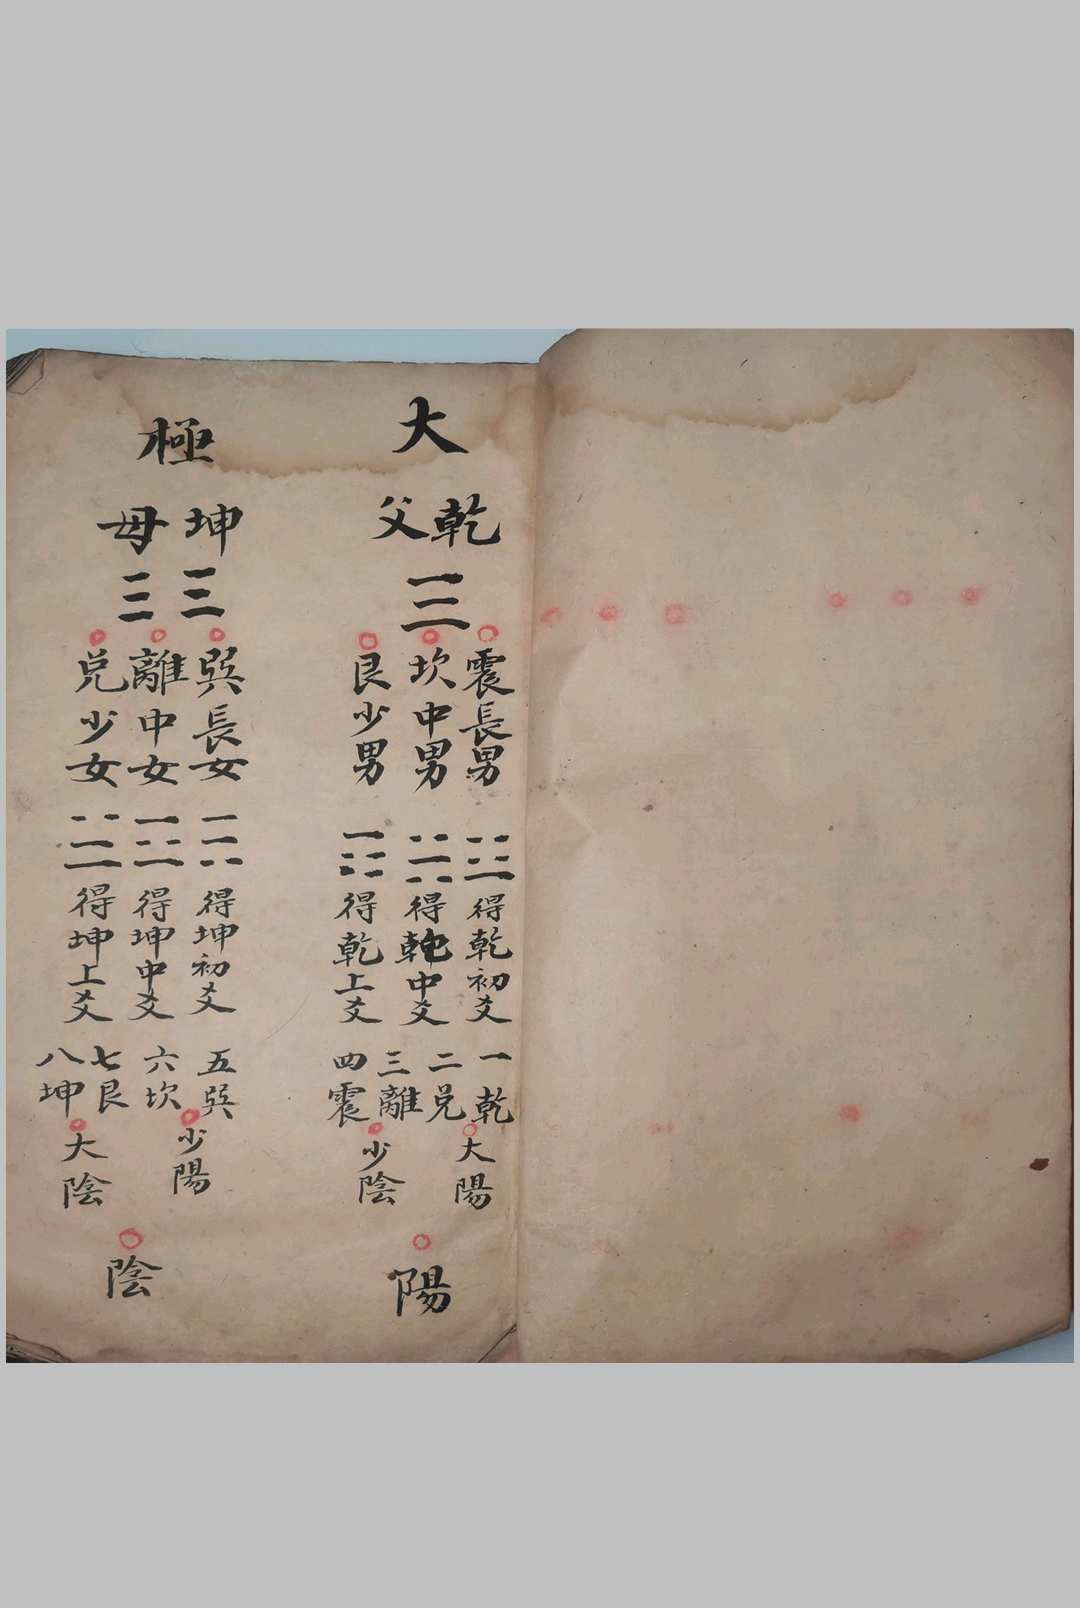 大極
乾父
坤母
震長男
坎中男
艮少男
巽長女
離中女
兌少女
得乾初爻
得乾中爻
得乾上爻
得坤初爻
得坤中爻
得坤上爻
一乾
二兌
三離
四震
五巽
六坎
七艮
八坤
大陽
少陰
少陽
大陰
陽
陰